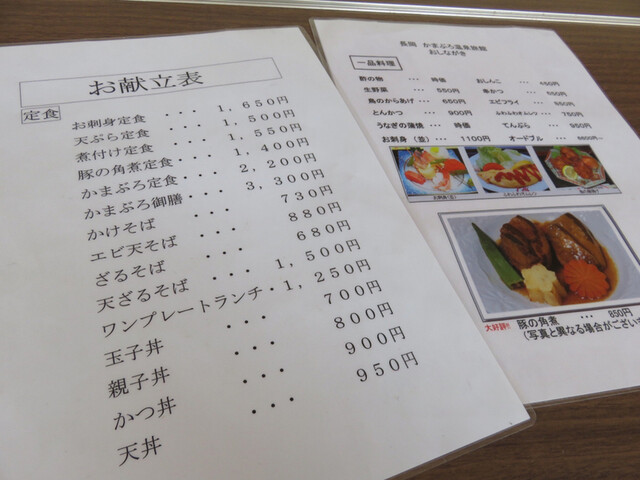 お献立表
定食
お刺身定食 ・・・ 1,650円
天ぷら定食 ・・・ 1,500円
煮付け定食 ・・・ 1,550円
豚の角煮定食・・・ 1,400円
かまぶろ定食・・・ 2,200円
かまぶろ御膳・・・ 3,300円
かけそば ・・・ 730円
エビ天そば ・・・ 880円
ざるそば ・・・ 680円
天ざるそば ・・・ 1,500円
ワンプレートランチ・1,250円
玉子丼 ・・・ 700円
親子丼 ・・・ 800円
かつ丼 ・・・ 900円
天丼 ・・・ 950円
長岡 かまぶろ温泉旅館
おしながき
一品料理
酢の物 ・・・ 時価 おしんこ ・・・ 450円
生野菜 ・・・ 550円 串かつ ・・・
鳥のからあげ ・・・ 650円 エビフライ ・・・
とんかつ ・・・ 900円 ふわふわオムレツ ・・・ 750円
うなぎの蒲焼 ・・・ 時価 てんぷら ・・・ 950円
お刺身(並) ・・・ 1100円 オードブル ・・・
お刺身(並)
大好評!! 豚の角煮 ・・・ 850円
(写真と異なる場合がございま